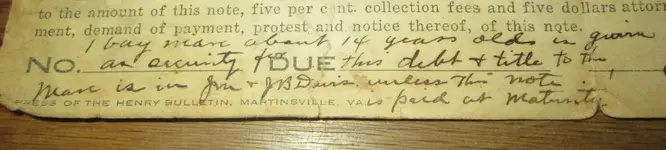 to the amount of this note, five per cent. collection fees and five dollars attor
ment, demand of payment, protest and notice thereof, of this note.
1 bay mare about 14 years olds is given
No. as security for DUE this debt & title to this
Mare is in Jm & JB Davis unless this note
PRESS OF THE HENRY BULLETIN, MARTINSVILLE, VA. is paid at Maturity